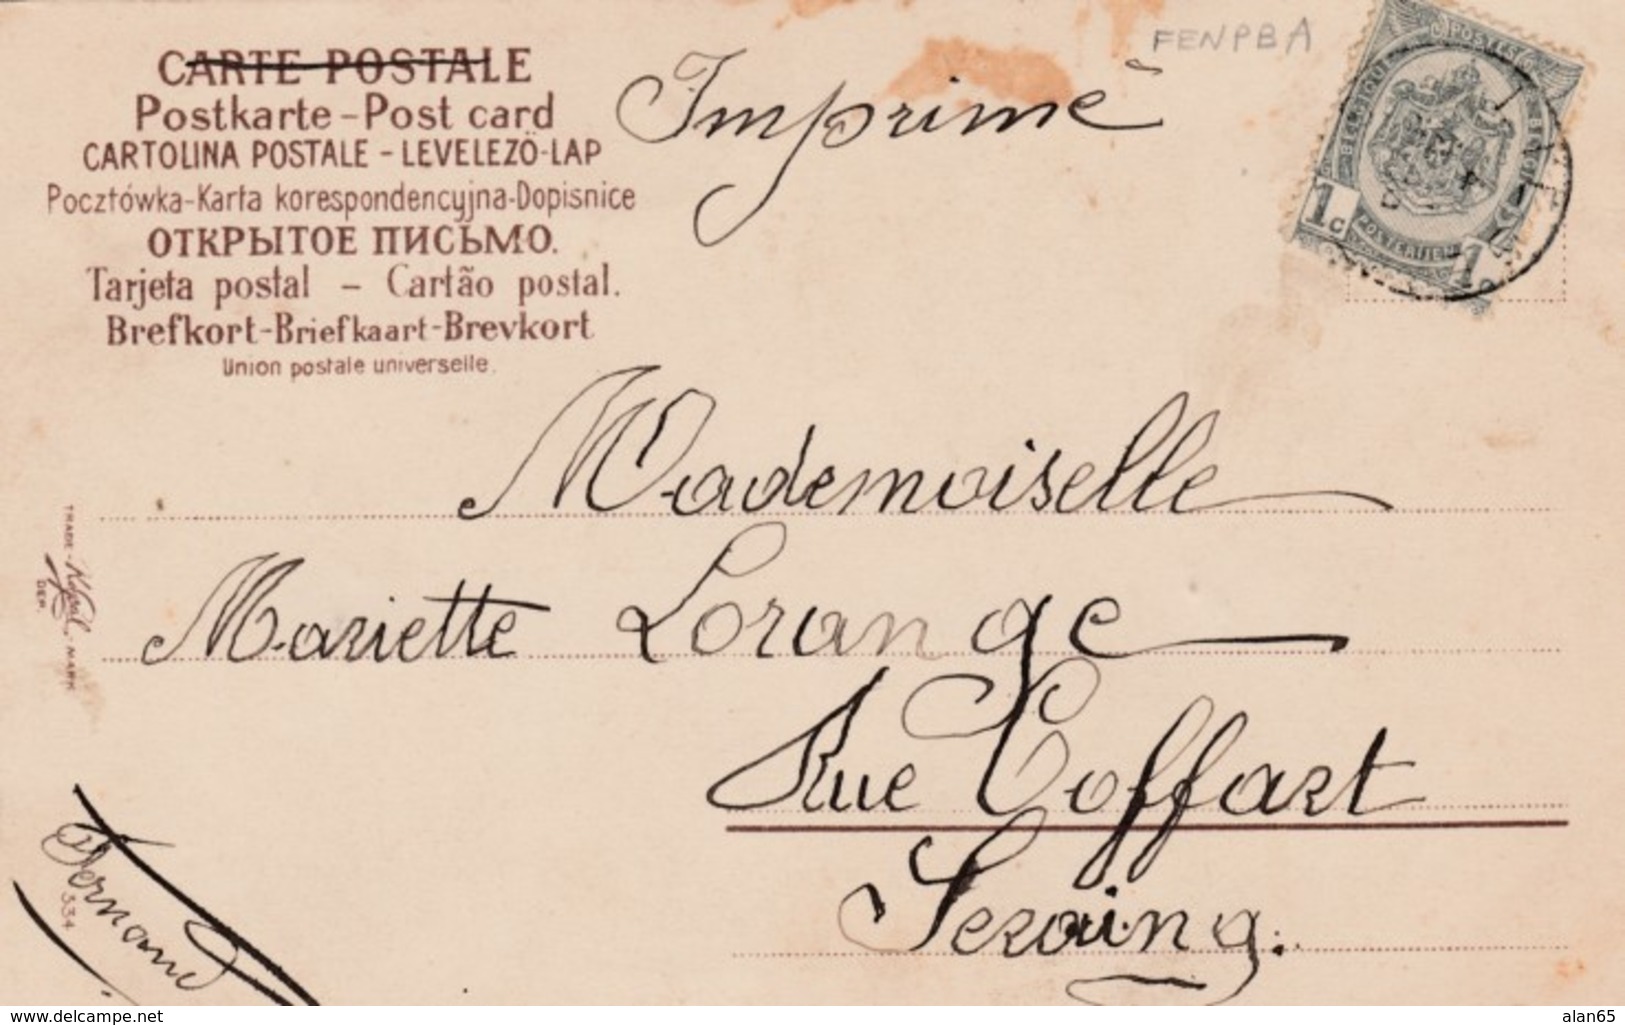 CARTE POSTALE
Postkarte - Post card
CARTOLINA POSTALE - LEVELEZÖ-LAP
Pocztówka-Karta korespondencyjna-Dopisnice
ОТКРЫТОЕ ПИСЬМО.
Tarjeta postal - Cartão postal.
Brefkort-Briefkaart-Brevkort
Union postale universelle.
Imprimé
FENPBA
POSTES
BELGIQUE
1c
POSTERIJEN
1c
Mademoiselle
Mariette Lorange
Rue Coffart
Seraing.
TRADE-
MARK
DEP.
534
Fernand
www.delcampe.net
alan65